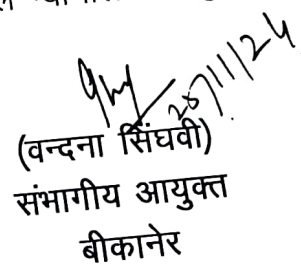 28/11/24
(वन्दना सिंघवी)
संभागीय आयुक्त
बीकानेर